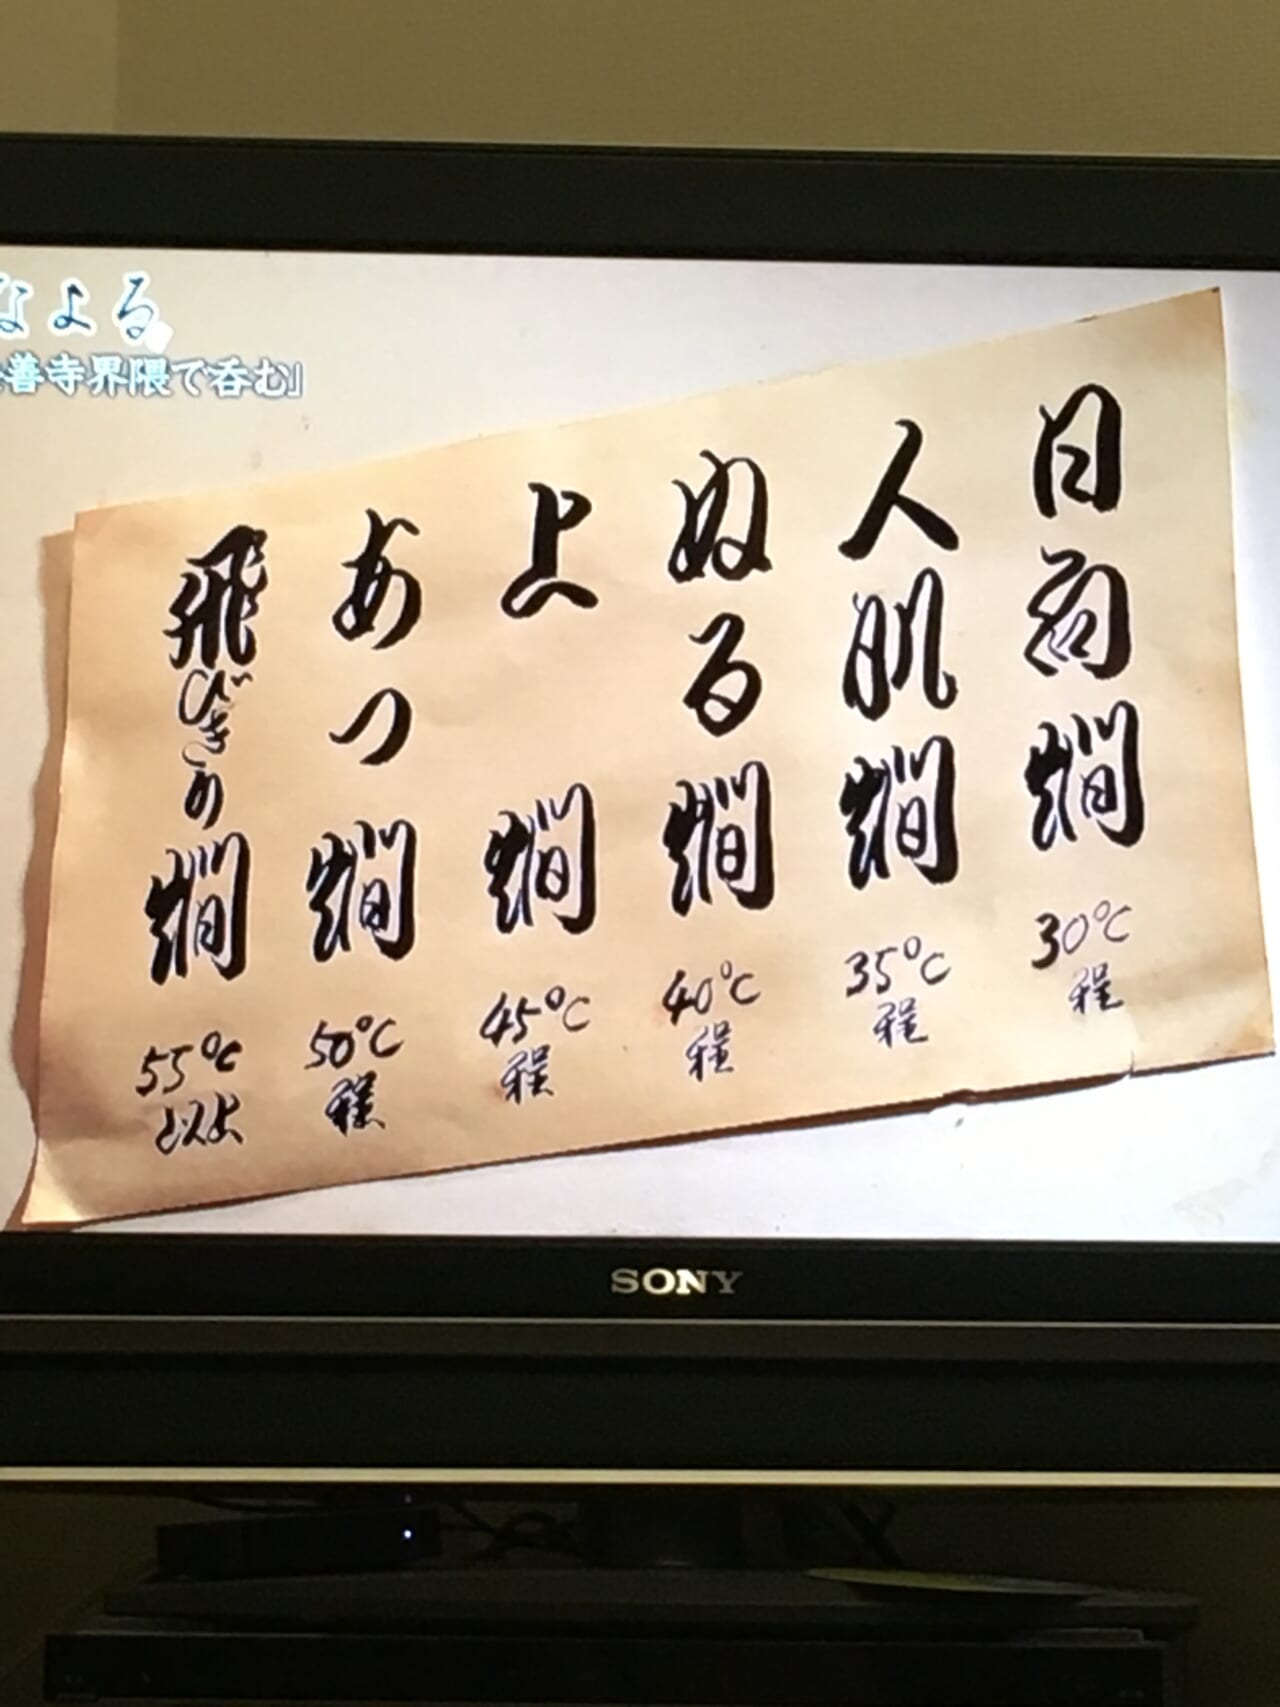 なよる
善寺界隈で呑む」
日向燗
30℃
程
人肌燗
35℃
程
ぬる燗
40℃
程
上燗
45℃
程
あつ燗
50℃
程
飛びきり燗
55℃
以上
SONY